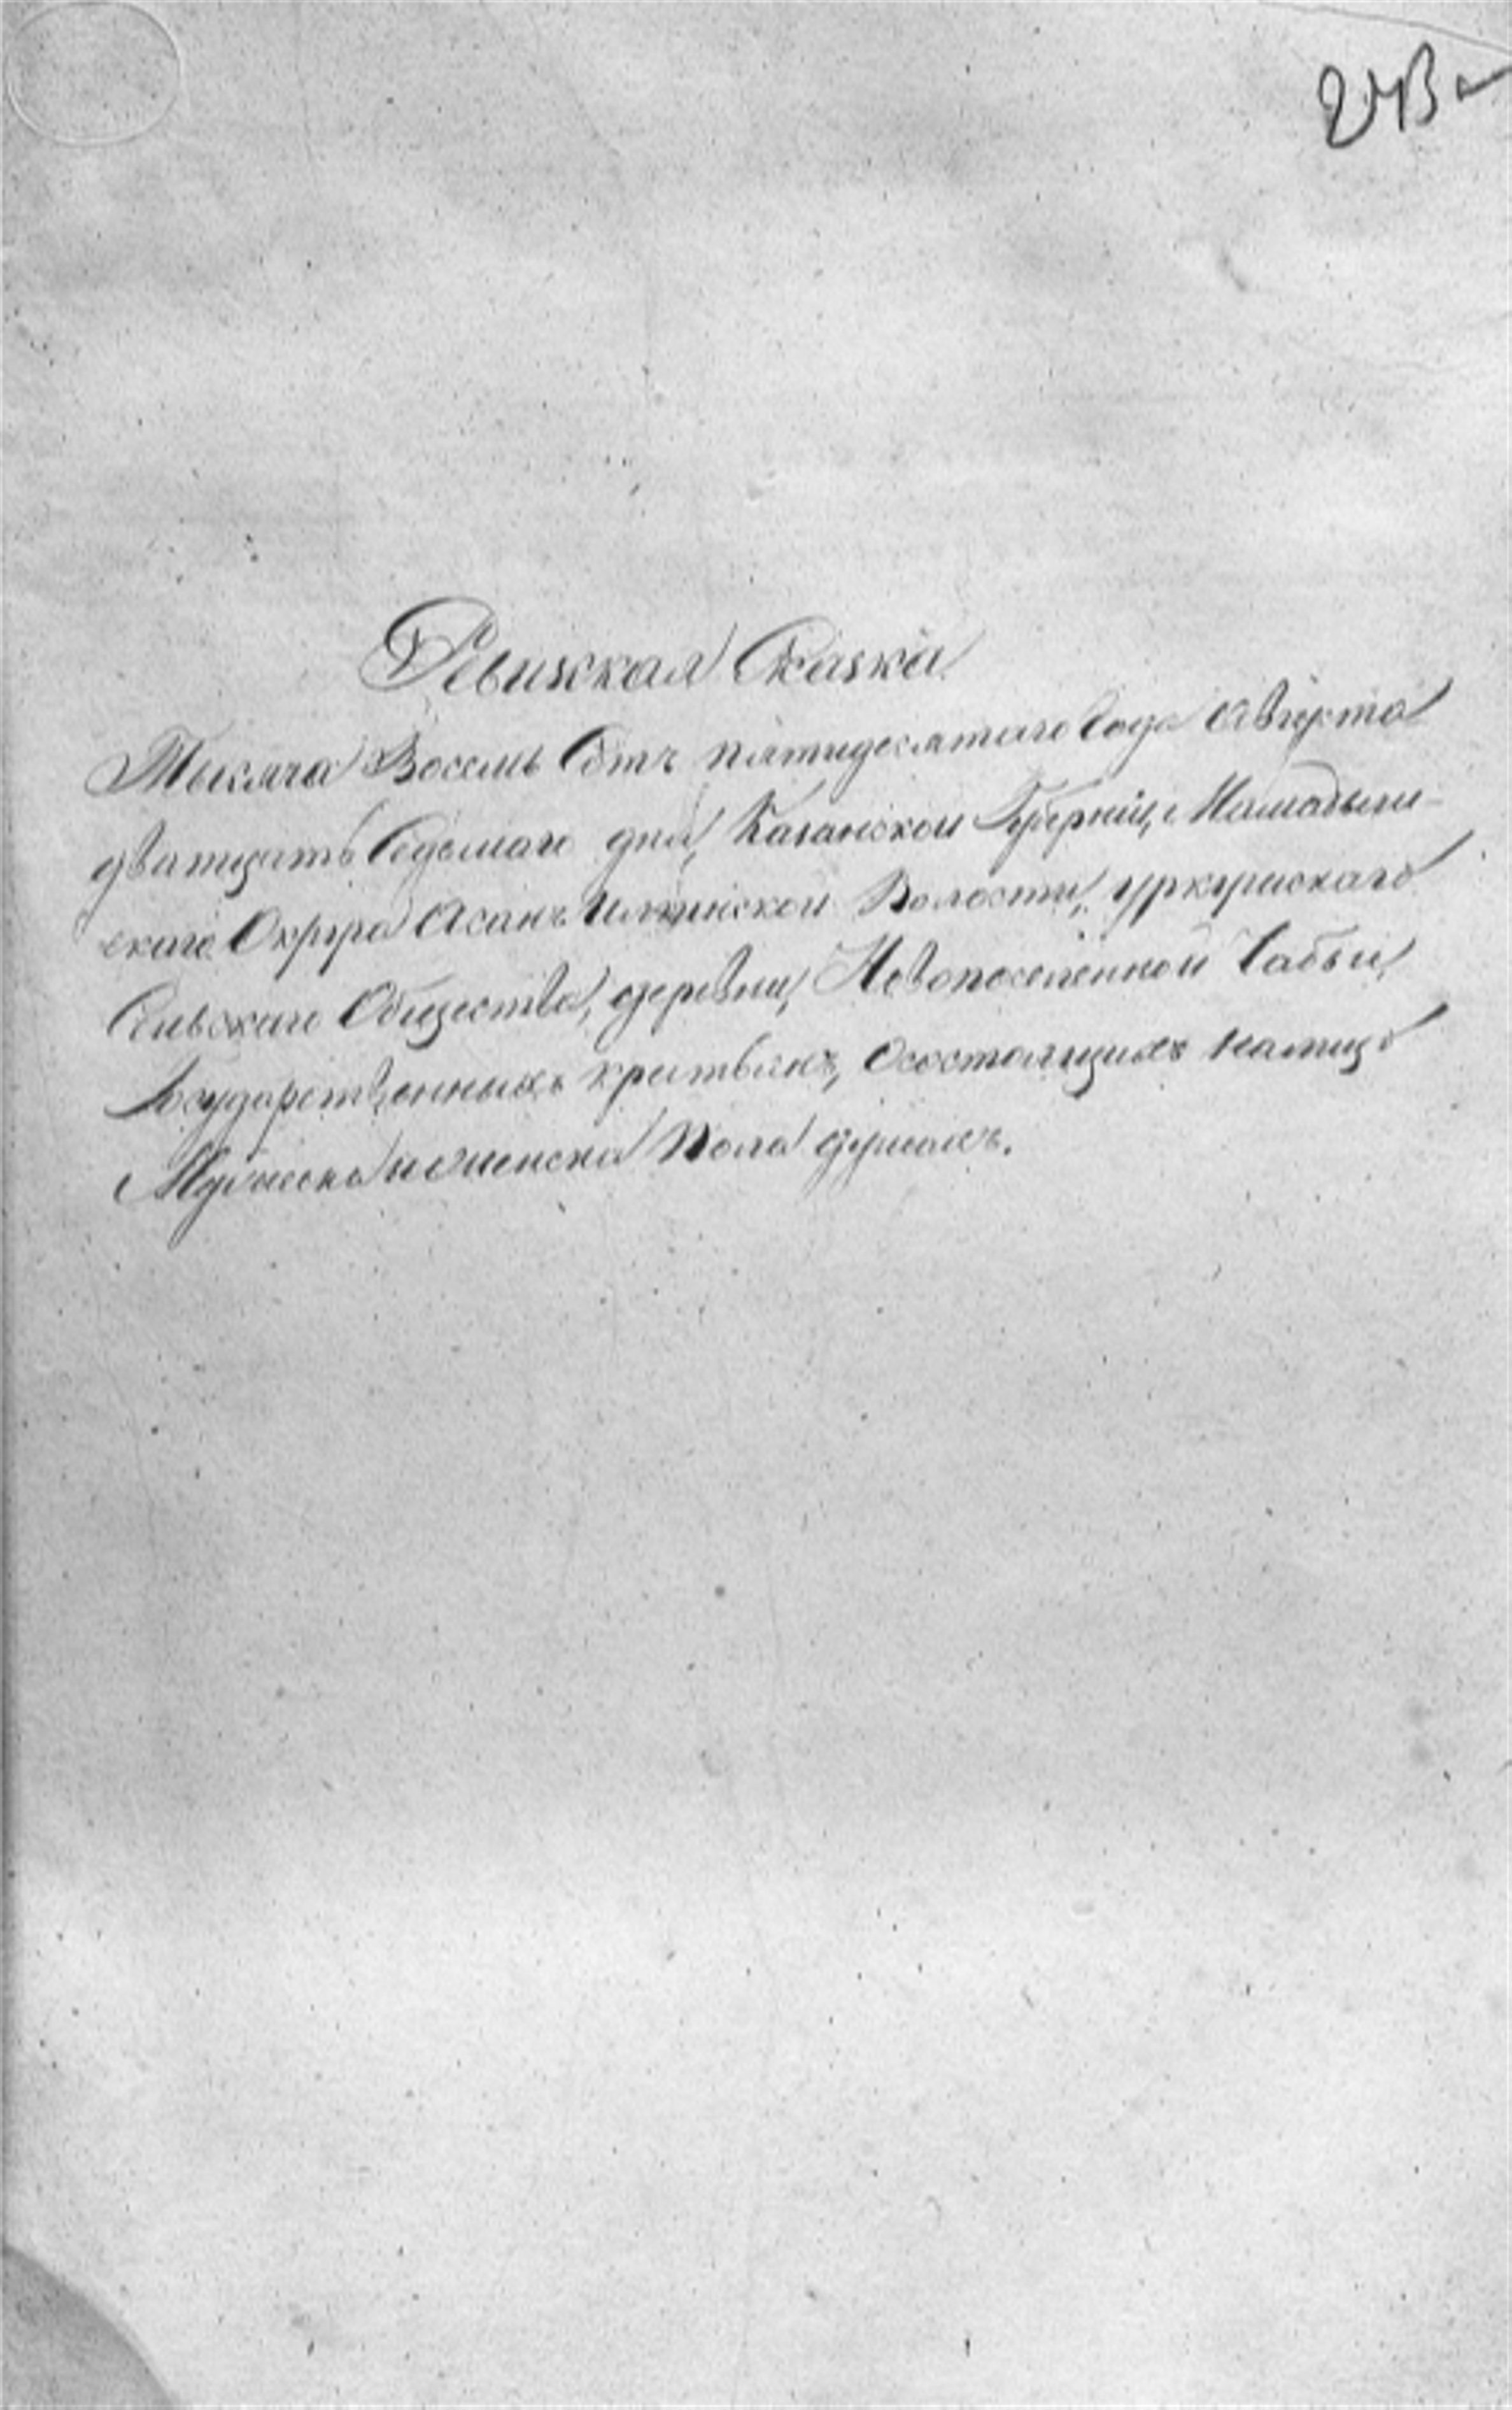 243
Ревижская Сказка
Тысяча Восемь Сотъ пятидесятаго Года Августа
дватцать Седьмаго дня, Казанской Губернiи, Мамадыш-
скаго Округа Асанъ Илгинской Волости, уркушскаго
Сельскаго Общества, деревни, Новопоселенной Сабы,
Государственныхъ крестьянъ, Осостоящихъ налицо
Мужеска и женска Пола душахъ.